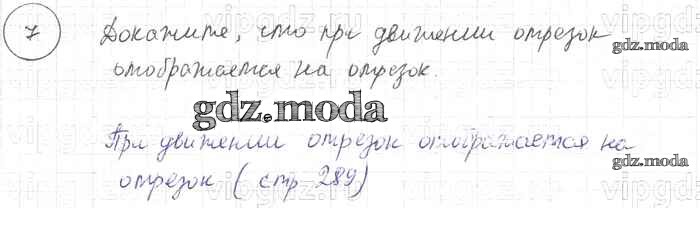 7 Докажите, что при движении отрезок
отображается на отрезок.
gdz.moda
gdz.moda
При движении отрезок отображается на
отрезок (стр 289)
gdz.moda